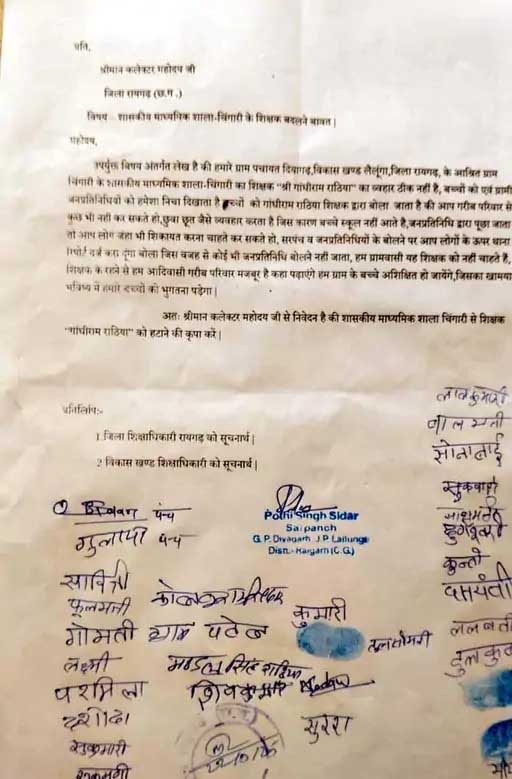 प्रति,
श्रीमान कलेक्टर महोदय जी
जिला रायगढ़ (छ.ग.)
विषय - शासकीय माध्यमिक शाला-चिंगारी के शिक्षक बदलने बावत |
महोदय,
उपर्युक्त विषय अंतर्गत लेख है की हमारे ग्राम पंचायत दियागढ़,विकास खण्ड लैलूंगा,जिला रायगढ़, के आश्रित ग्राम
चिंगारी के शासकीय माध्यमिक शाला-चिंगारी का शिक्षक "श्री गांधीराम राठिया" का व्यहार ठीक नहीं है, बच्चों को एवं ग्रामी
जनप्रतिनिधियों को हमेशा निचा दिखाता है बच्चों को गांधीराम राठिया शिक्षक द्वारा बोला जाता है की आप गरीब परिवार से
कुछ भी नहीं कर सकते हो,छुवा छूत जैसे व्यवहार करता है जिस कारण बच्चे स्कूल नहीं आते है,जनप्रतिनिधि द्वारा पूछा जाता
तो आप लोग जहा भी शिकायत करना चाहते कर सकते हो, सरपंच व जनप्रतिनिधियों के बोलने पर आप लोगों के ऊपर थाना
रिपोर्ट दर्ज करा दूंगा बोला जिस वजह से कोई भी जनप्रतिनिधि बोलने नहीं जाता, हम ग्रामवासी यह शिक्षक को नहीं चाहते है,
शिक्षक के रहने से हम आदिवासी गरीब परिवार मजबूर है कहा पढ़ाएंगे हम ग्राम के बच्चे अशिक्षित हो जायेंगे,जिसका खामया
भविष्य में हमारे बच्चों को भुगतना पड़ेगा |
अतः श्रीमान कलेक्टर महोदय जी से निवेदन है की शासकीय माध्यमिक शाला चिंगारी से शिक्षक
"गांधीराम राठिया" को हटाने की कृपा करें |
प्रतिलिपि:-
1.जिला शिक्षाधिकारी रायगढ़ को सूचनार्थ |
2.विकास खण्ड शिक्षाधिकारी को सूचनार्थ |
लालकुमारी
बालमती
सोनाबाई
सुकवारो
कुन्ती
दमयंती
ललवती
पंच
गुलापी पंच
Pothi Singh Sidar
Sarpanch
G.P. Divagarh J.P Lailunga
Distt.- Raigarh (C.G.)
सावित्री
फूलमती
कुमारी
गोमती
राम पटेल
लक्ष्मी
परमिला
शिवकुमार
यशोदा
सुरेश
सुकुमारी
रुकमणी